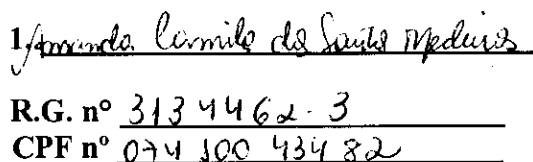 1. Amanda Camila da Santa Medeiros
R.G. nº 3134462-3
CPF nº 074 100 434 82